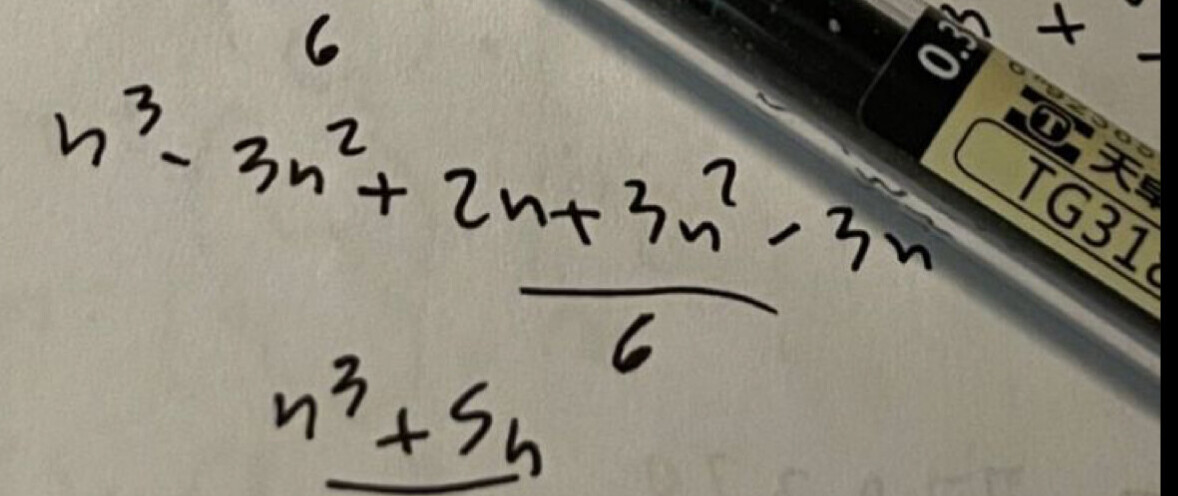 6
n³ - 3n² + 2n + 3n² - 3n
6
n³ + 5n
0.3
天
TG31